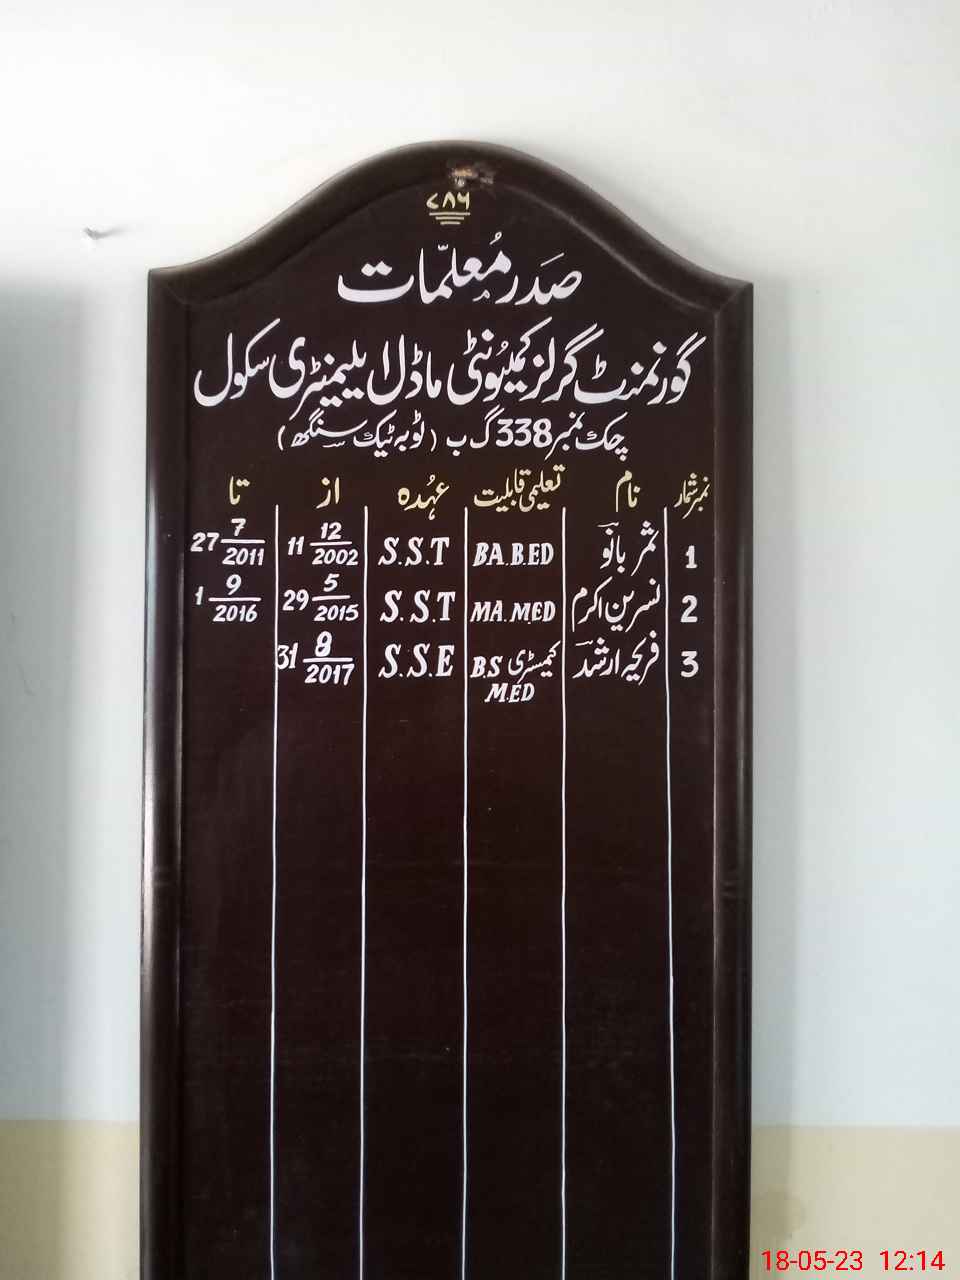 ۷۸۶
صَدر مُعلّمات
گورنمنٹ گرلز کمیُونٹی ماڈل ایلیمنٹری سکول
چک نمبر 338 گ ب (ٹوبہ ٹیک سنگھ)
نمبر شمار نام تعلیمی قابلیت عہُدہ از تا
1 ثمر بانو BA.B.ED S.S.T 11 12/2002 27 7/2011
2 نسرین اکرم MA.M.ED S.S.T 29 5/2015 1 9/2016
3 فریحہ ارشد B.S کیمسٹری S.S.E 31 8/2017
M.ED
18-05-23 12:14